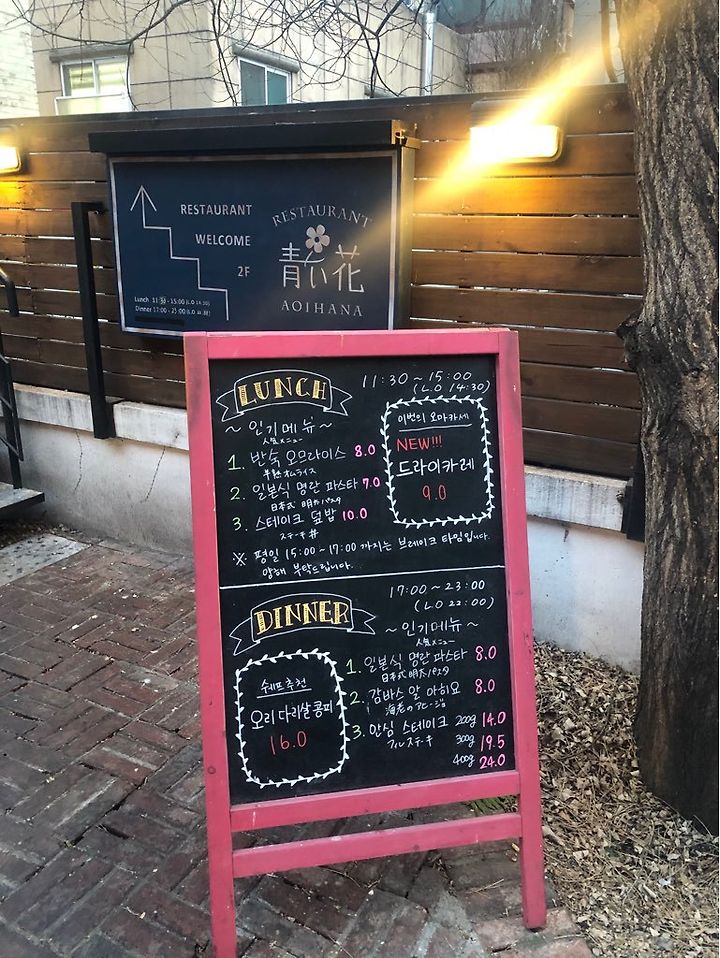 RESTAURANT
WELCOME
2F
RESTAURANT
青い花
AOIHANA
Lunch 11:30 - 15:00 (L.O 14:30)
Dinner 17:00 - 23:00 (L.O 22:00)
LUNCH
11:30 ~ 15:00
(L.O 14:30)
~ 인기메뉴 ~
人気メニュー
1. 반숙 오므라이스 8.0
半熟オムライス
2. 일본식 명란 파스타 7.0
日本式 明太パスタ
3. 스테이크 덮밥 10.0
ステーキ丼
이번의 오마카세
NEW!!!
드라이카레
9.0
※ 평일 15:00~17:00 까지는 브레이크 타임입니다.
양해 부탁드립니다.
DINNER
17:00 ~ 23:00
(L.O 22:00)
~ 인기메뉴 ~
人気メニュー
1. 일본식 명란 파스타 8.0
日本式 明太パスタ
2. 감바스 알 아히요 8.0
海老のアヒージョ
3. 안심 스테이크 200g 14.0
フィレステーキ 300g 19.5
400g 24.0
쉐프 추천
오리다리살 콩피
16.0